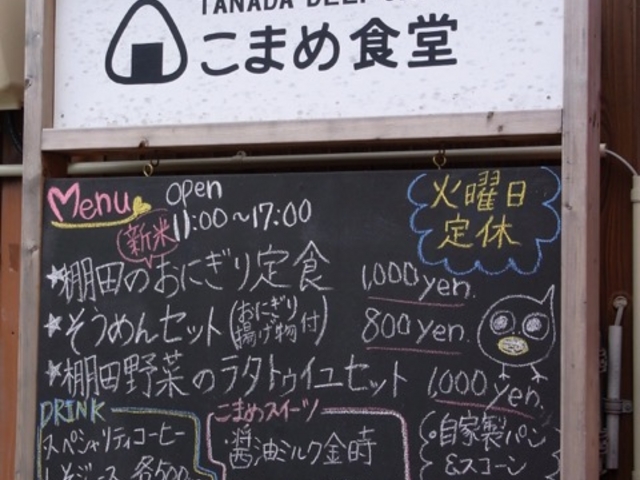 TANADA DELI
こまめ食堂
Menu
open
11:00〜17:00
火曜日
定休
新米
★棚田のおにぎり定食 1,000yen.
★そうめんセット(おにぎり揚げ物付) 800yen.
★棚田野菜のラタトゥイユセット 1,000yen.
DRINK
スペシャリティコーヒー
しそジュース 各500
こまめスイーツ
・醤油ミルク金時
・自家製パン
&スコーン